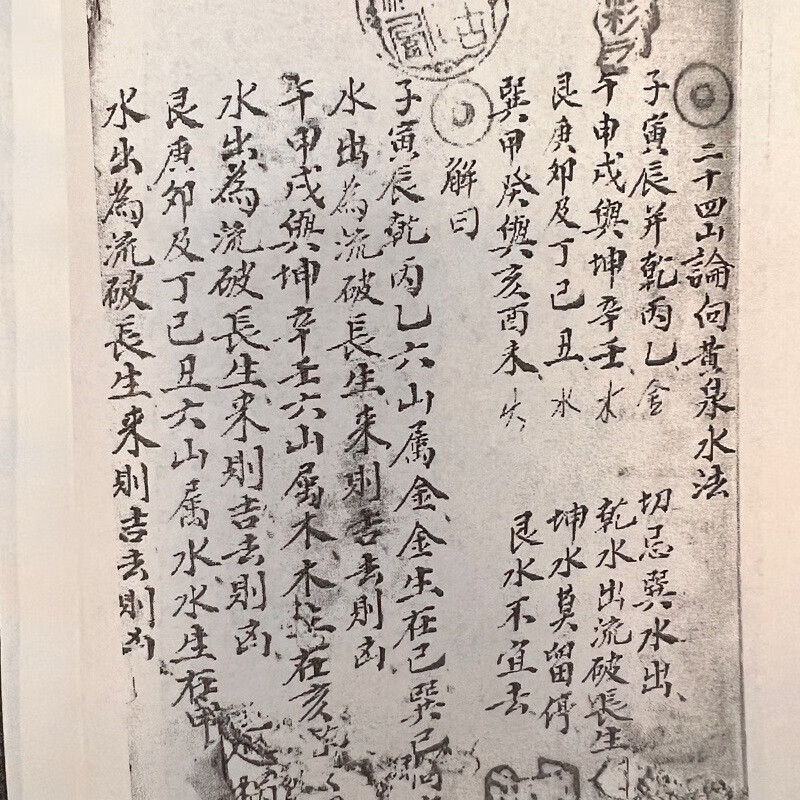 二十四山論向黃泉水法
子寅辰并乾丙乙金 切忌巽水出
午申戌與坤辛壬木 乾水出流破長生
艮庚卯及丁己丑水 坤水莫留停
巽甲癸與亥酉未火 艮水不宜去
解曰
子寅辰乾丙乙六山属金金生在己巽己
水出為流破長生来則吉去則凶
午申戌與坤辛壬六山属木木在亥
水出為流破長生来則吉去則凶
艮庚卯及丁己丑六山属水水生在申
水出為流破長生来則吉去則凶